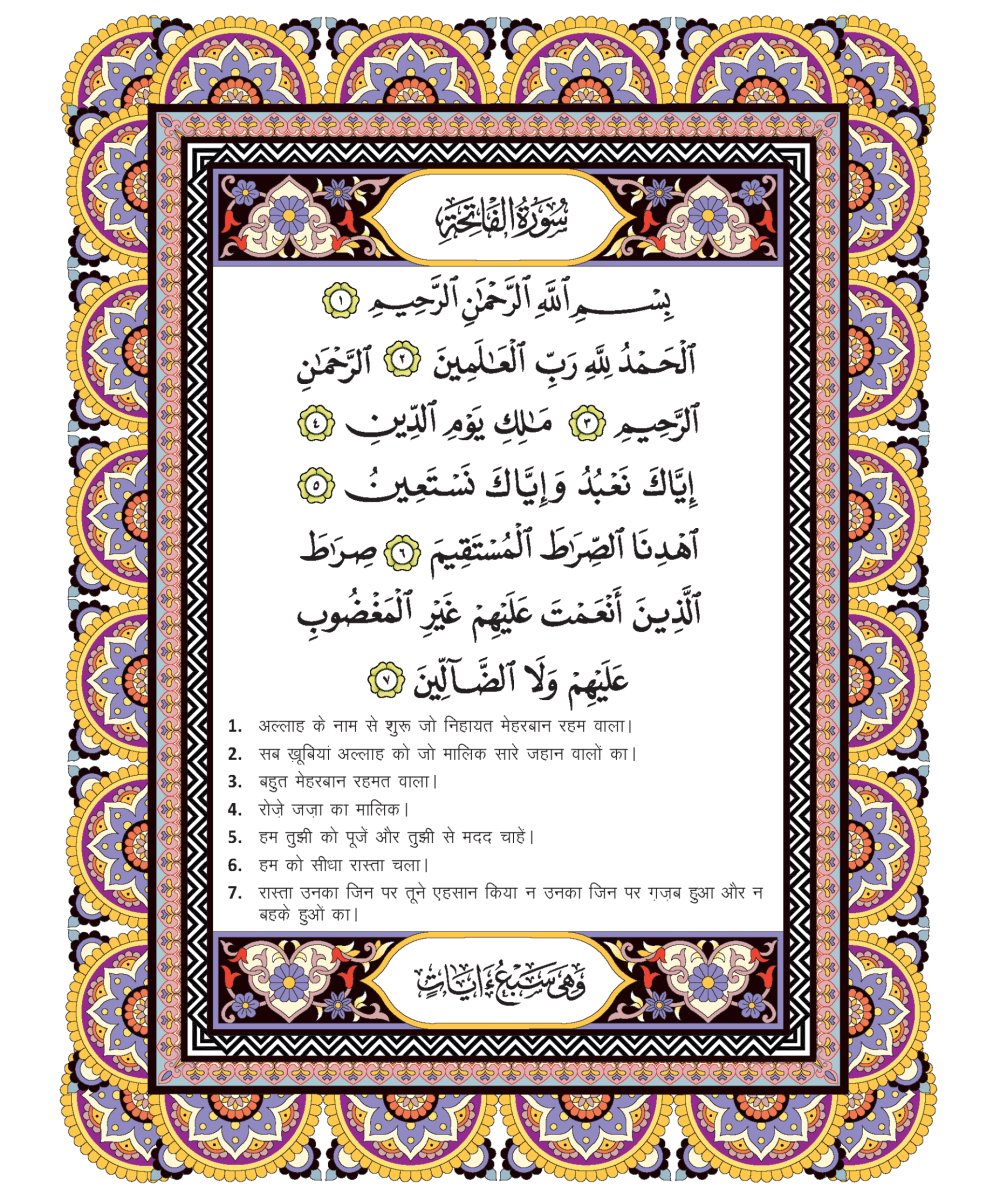 سُورَةُ الْفَاتِحَةِ
بِسْمِ ٱللَّهِ ٱلرَّحْمَٰنِ ٱلرَّحِيمِ ١
ٱلْحَمْدُ لِلَّهِ رَبِّ ٱلْعَٰلَمِينَ ٢ ٱلرَّحْمَٰنِ
ٱلرَّحِيمِ ٣ مَٰلِكِ يَوْمِ ٱلدِّينِ ٤
إِيَّاكَ نَعْبُدُ وَإِيَّاكَ نَسْتَعِينُ ٥
ٱهْدِنَا ٱلصِّرَٰطَ ٱلْمُسْتَقِيمَ ٦ صِرَٰطَ
ٱلَّذِينَ أَنْعَمْتَ عَلَيْهِمْ غَيْرِ ٱلْمَغْضُوبِ
عَلَيْهِمْ وَلَا ٱلضَّآلِّينَ ٧
1. अल्लाह के नाम से शुरू जो निहायत मेहरबान रहम वाला।
2. सब ख़ूबियां अल्लाह को जो मालिक सारे जहान वालों का।
3. बहुत मेहरबान रहमत वाला।
4. रोज़े जज़ा का मालिक।
5. हम तुझी को पूजें और तुझी से मदद चाहें।
6. हम को सीधा रास्ता चला।
7. रास्ता उनका जिन पर तूने एहसान किया न उनका जिन पर ग़ज़ब हुआ और न
बहके हुओं का।
وَهِيَ سَبْعُ ءَايَاتٍ